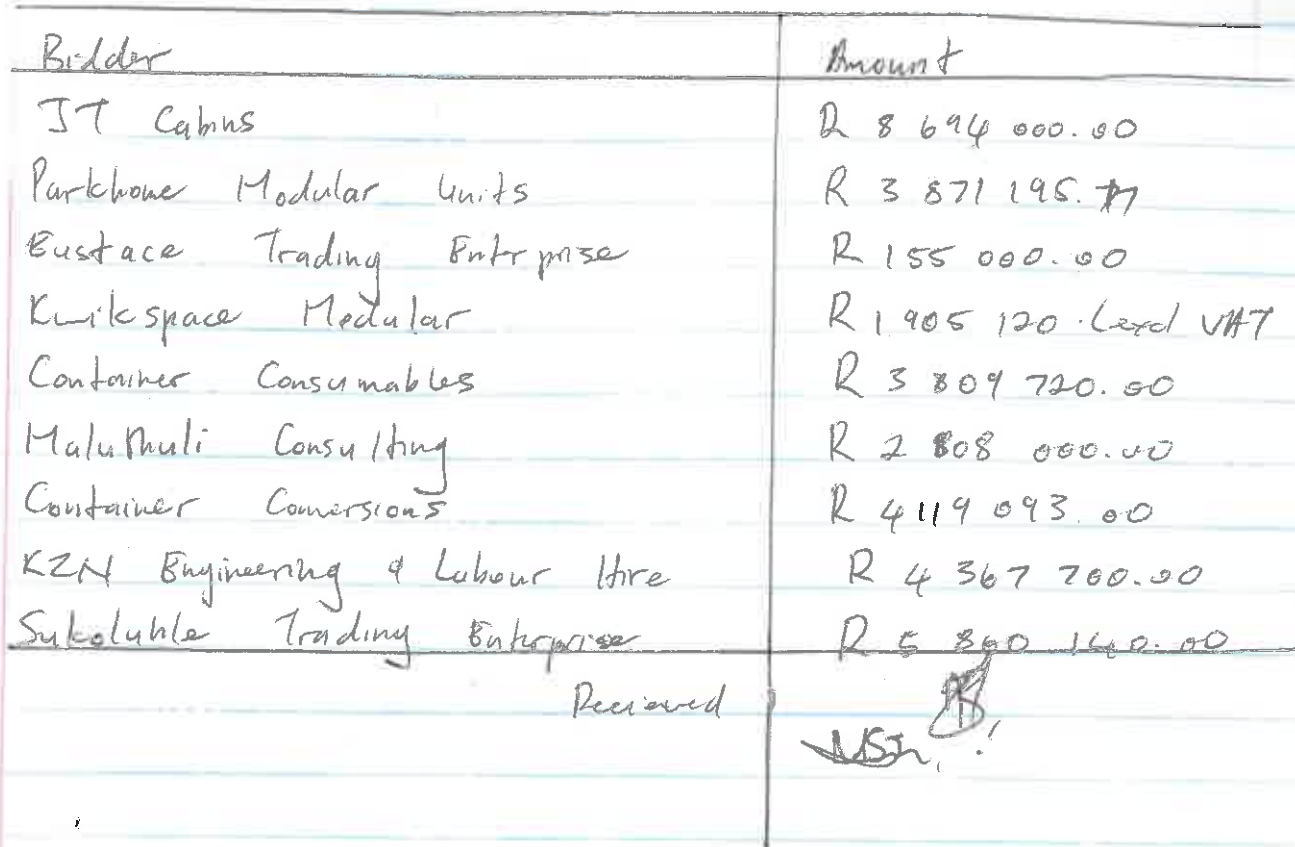 Bidder Amount
JT Cabins R 8 694 000.00
Parkhome Modular Units R 3 871 195.71
Eustace Trading Entrprise R 155 000.00
Kwikspace Modular R 1 905 120. (exd VAT
Container Consumables R 3 809 720.00
Maluthuli Consulting R 2 808 000.00
Container Conversions R 4 119 093.00
KZN Engineering & Labour Hire R 4 367 700.00
Sukoluhle Trading Enterprise R 5 860 140.00
Recieved